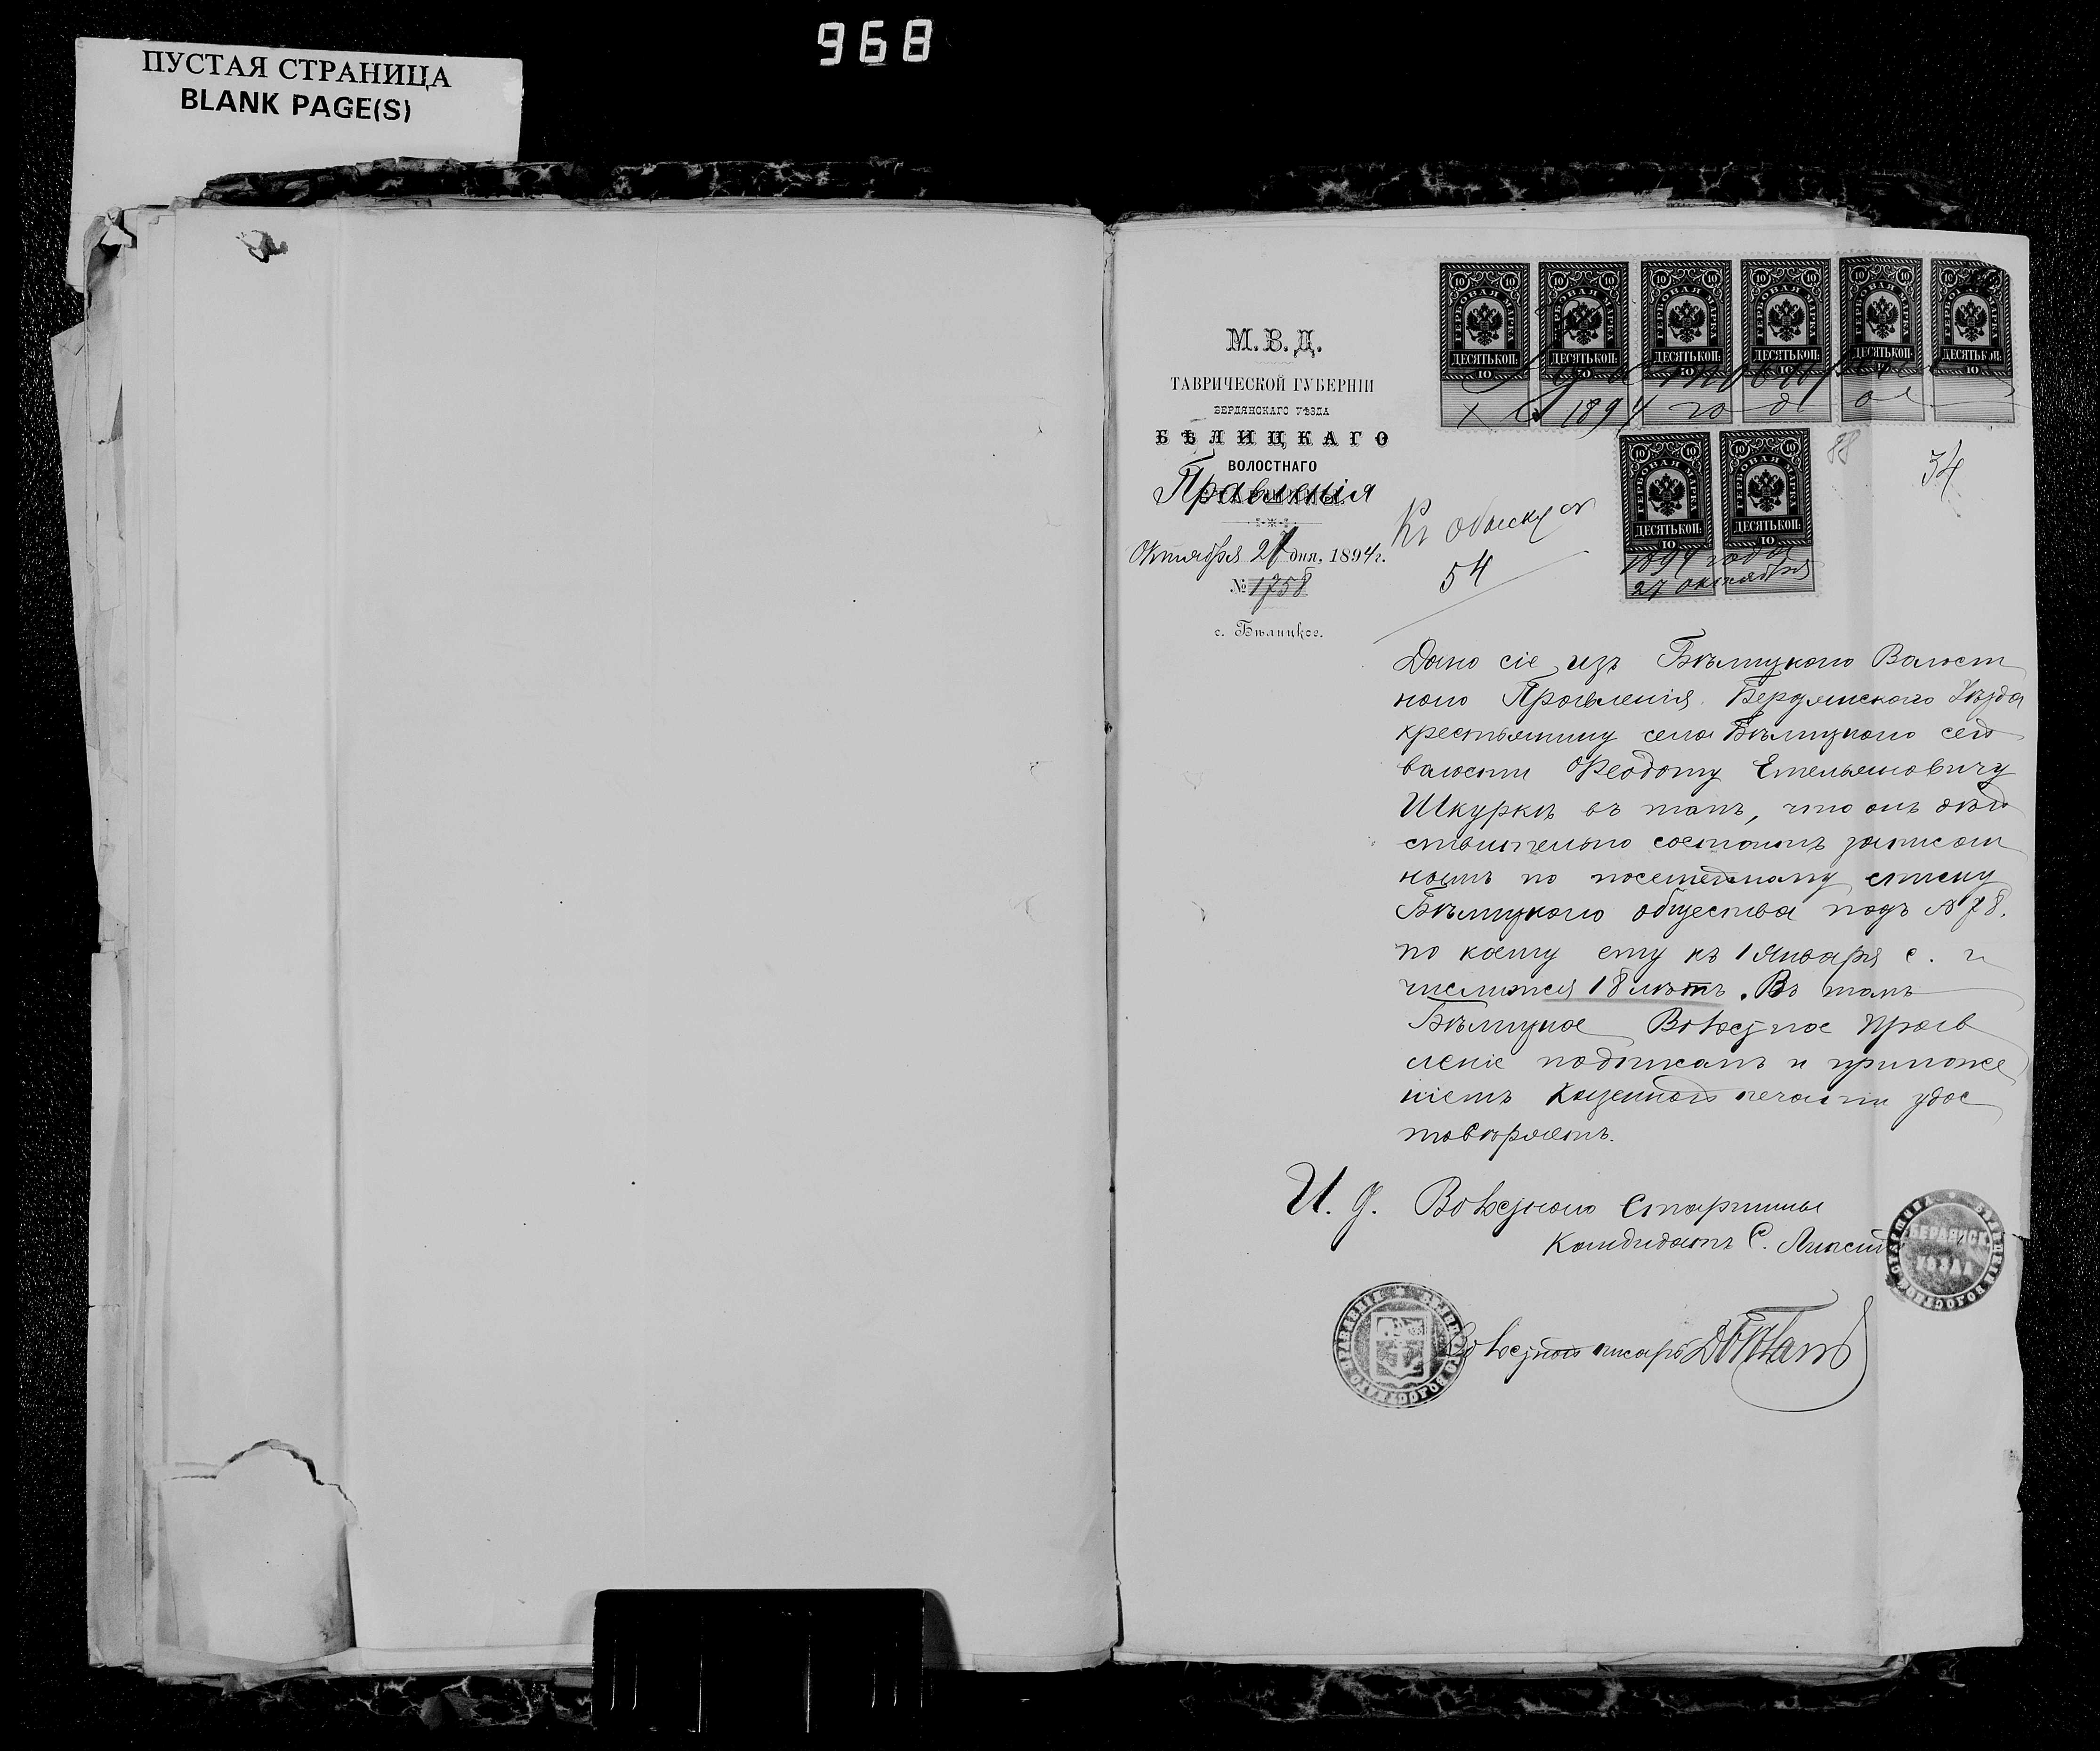 968
ПУСТАЯ СТРАНИЦА
BLANK PAGE(S)
М.В.Д.
ТАВРИЧЕСКОЙ ГУБЕРНІИ
БЕРДЯНСКАГО УѢЗДА
БѢЛИЦКАГО
ВОЛОСТНАГО
Правленія
Октября 27 дня, 1894 г.
№ 1758
с. Бѣлицкое.
ГЕРБОВАЯ МАРКА ДЕСЯТЬ КОП: 10
ГЕРБОВАЯ МАРКА ДЕСЯТЬ КОП: 10
ГЕРБОВАЯ МАРКА ДЕСЯТЬ КОП: 10
ГЕРБОВАЯ МАРКА ДЕСЯТЬ КОП: 10
ГЕРБОВАЯ МАРКА ДЕСЯТЬ КОП: 10
ГЕРБОВАЯ МАРКА ДЕСЯТЬ КОП: 10
1894 года
ГЕРБОВАЯ МАРКА ДЕСЯТЬ КОП: 10
ГЕРБОВАЯ МАРКА ДЕСЯТЬ КОП: 10
1894 года
27 октября
88
34
Къ обыску
54
Дано сіе изъ Бѣлицкаго Волост
наго Правленія Бердянскаго Уѣзда
крестьянину села Бѣлицкаго сей
волости Феодоту Емельяновичу
Шкуркѣ въ томъ, что онъ дѣй
ствительно состоитъ записан
нымъ по посемейному списку
Бѣлицкаго общества подъ № 78.
по коему ему къ 1 Января с. г.
числится 18 лѣтъ. Въ томъ
Бѣлицкое Волостное Прав
леніе подписомъ и приложе
ніемъ казенной печати удос
товѣряетъ.
И. д. Волостного Старшины
Кандидатъ С.
Волостной писарь